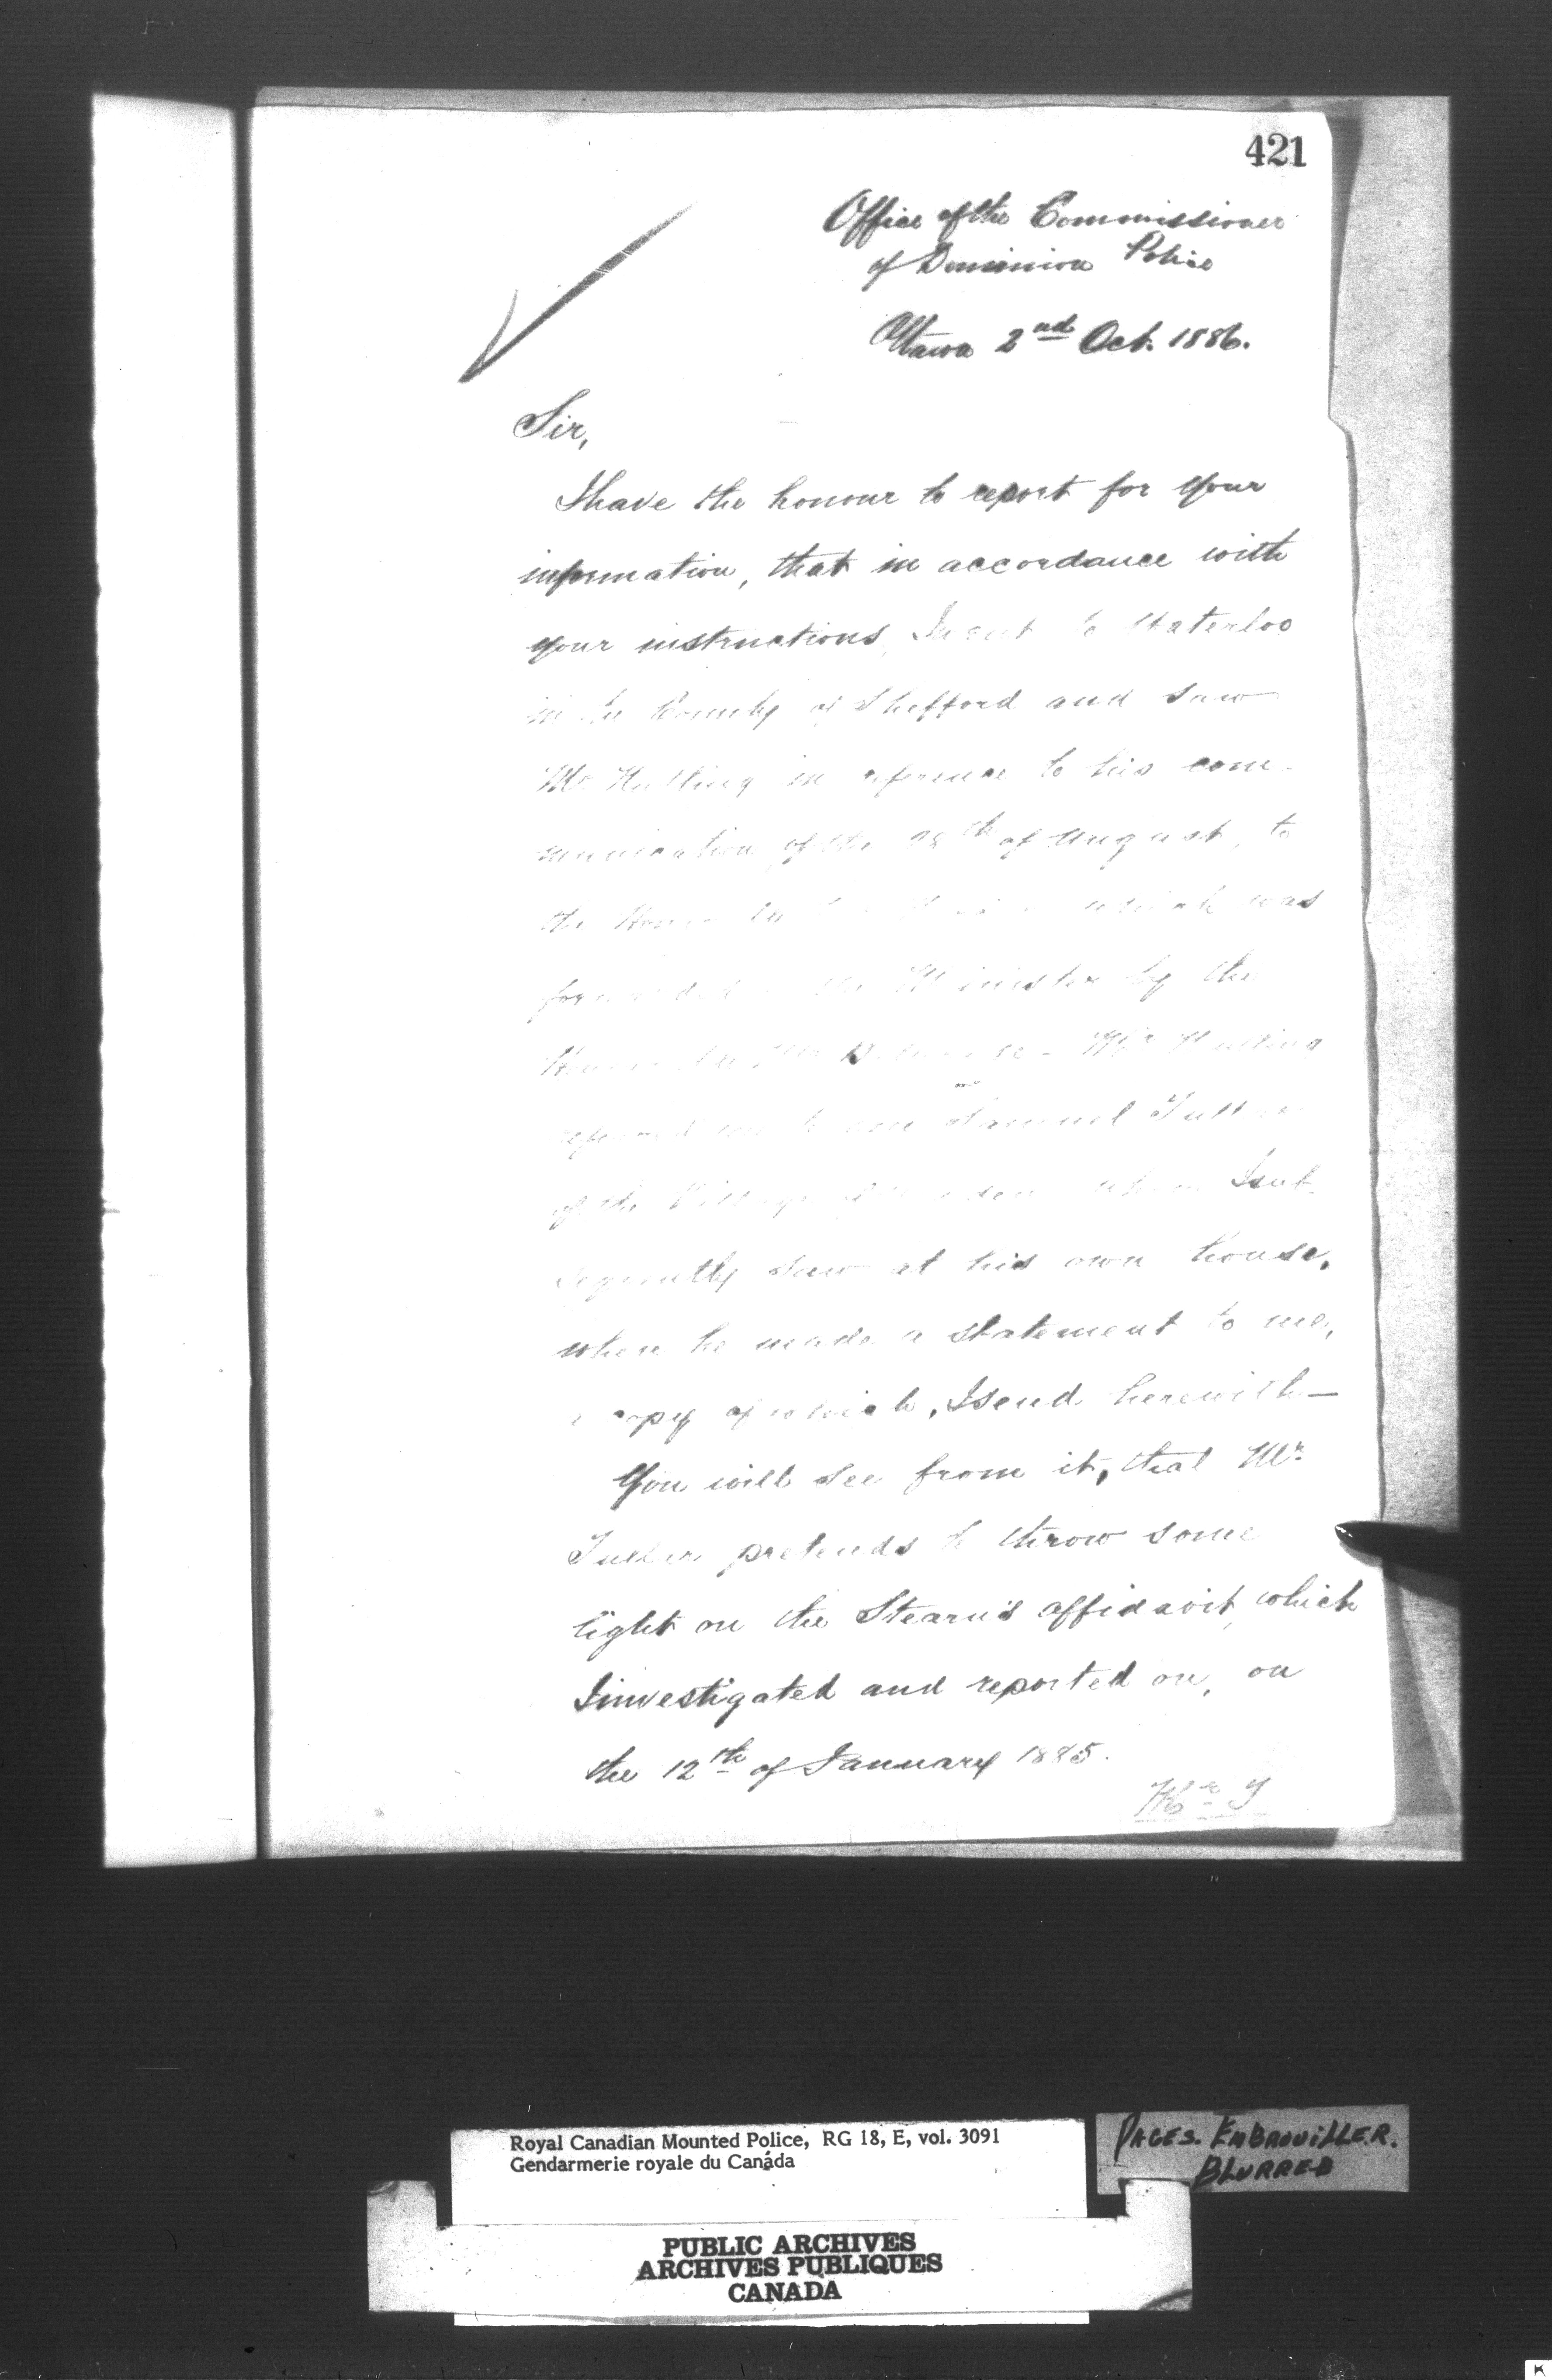 421
Office of the Commissioner
of Dominion Police
Ottawa 2nd Oct. 1886.
Sir,
I have the honour to report for your
information, that in accordance with
your instructions, I went to Waterloo
in the County of Shefford and saw
Mr in reference to his com-
munication of the 28th of August, to
the which was
forwarded the Minister by the
Mr
me to one Samuel
of the whom I sub-
sequently saw at his own house,
where he made a statement to me,
a copy of which, I send herewith—
You will see from it, that Mr.
pretends to throw some
light on the Stearn's affidavit, which
I investigated and reported on, on
the 12th of January 1885.
Royal Canadian Mounted Police, RG 18, E, vol. 3091
Gendarmerie royale du Canada
PAGES. EMBROUILLER.
BLURRED
PUBLIC ARCHIVES
ARCHIVES PUBLIQUES
CANADA